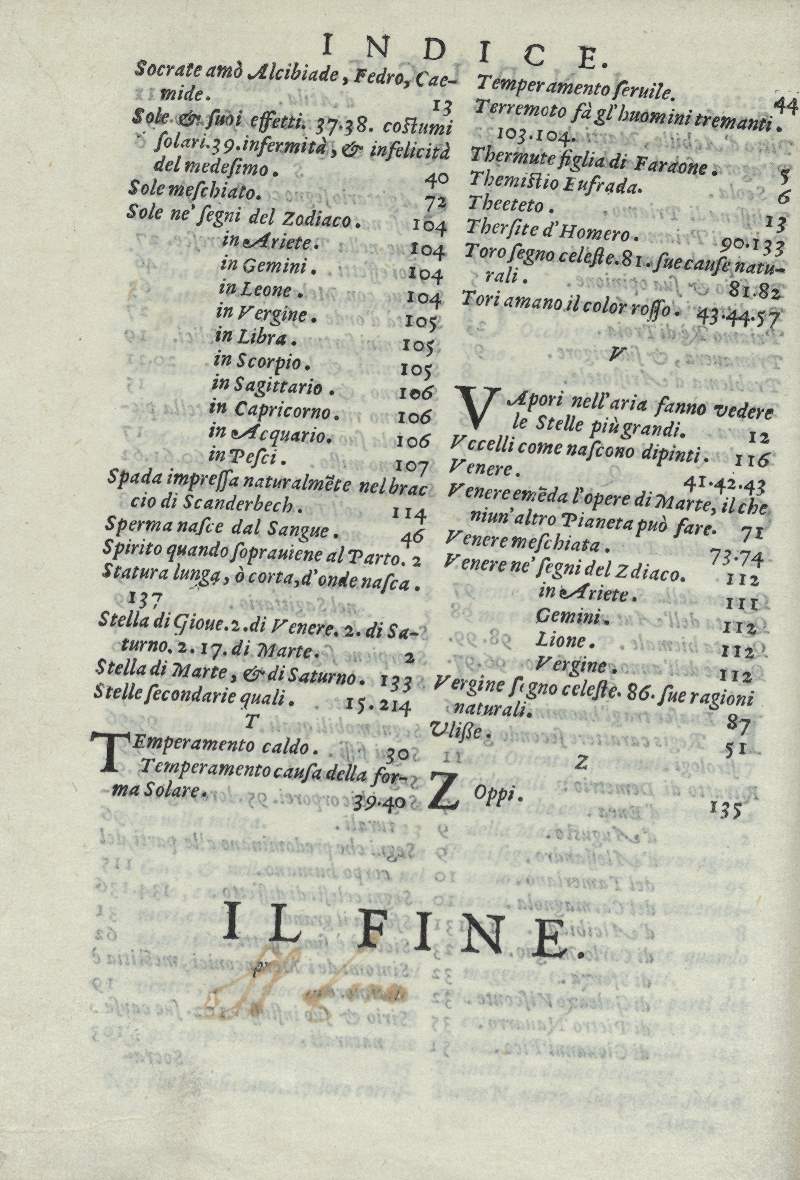 INDICE.
Socrate amò Alcibiade, Fedro, Cae-
mide. 13
Sole & suoi effetti. 37.38. costumi
solari. 39. infermità, & infelicità
del medesimo. 40
Sole meschiato. 72
Sole ne' segni del Zodiaco. 104
in Ariete. 104
in Gemini. 104
in Leone. 104
in Vergine. 105
in Libra. 105
in Scorpio. 105
in Sagittario. 106
in Capricorno. 106
in Acquario. 106
in Pesci. 107
Spada impressa naturalmēte nel brac
cio di Scanderbech. 114
Sperma nasce dal Sangue. 46
Spirito quando soprauiene al Parto. 2
Statura lunga, ò corta, d'onde nasca.
137
Stella di Gioue. 2. di Venere. 2. di Sa-
turno. 2. 17. di Marte. 2
Stella di Marte, & di Saturno. 133
Stelle secondarie quali. 15.214
T
TEmperamento caldo. 30
Temperamento causa della for-
ma Solare. 39.40
Temperamento seruile. 44
Terremoto fà gl'huomini tremanti.
103.104.
Thermute figlia di Faraone. 5
Themistio Eufrada. 6
Theeteto. 13
Thersite d'Homero. 90.133
Toro segno celeste. 81. sue cause natu-
rali. 81.82
Tori amano il color rosso. 43.44.57
V
VApori nell'aria fanno vedere
le Stelle più grandi. 12
Vccelli come nascono dipinti. 116
Venere. 41.42.43
Venere emēda l'opere di Marte, il che
niun'altro Pianeta può fare. 71
Venere meschiata. 73.74
Venere ne' segni del Zdiaco. 112
in Ariete. 111
Gemini. 112
Lione. 112
Vergine. 112
Vergine segno celeste. 86. sue ragioni
naturali. 87
Ulisse. 51
Z
ZOppi. 135
IL FINE.